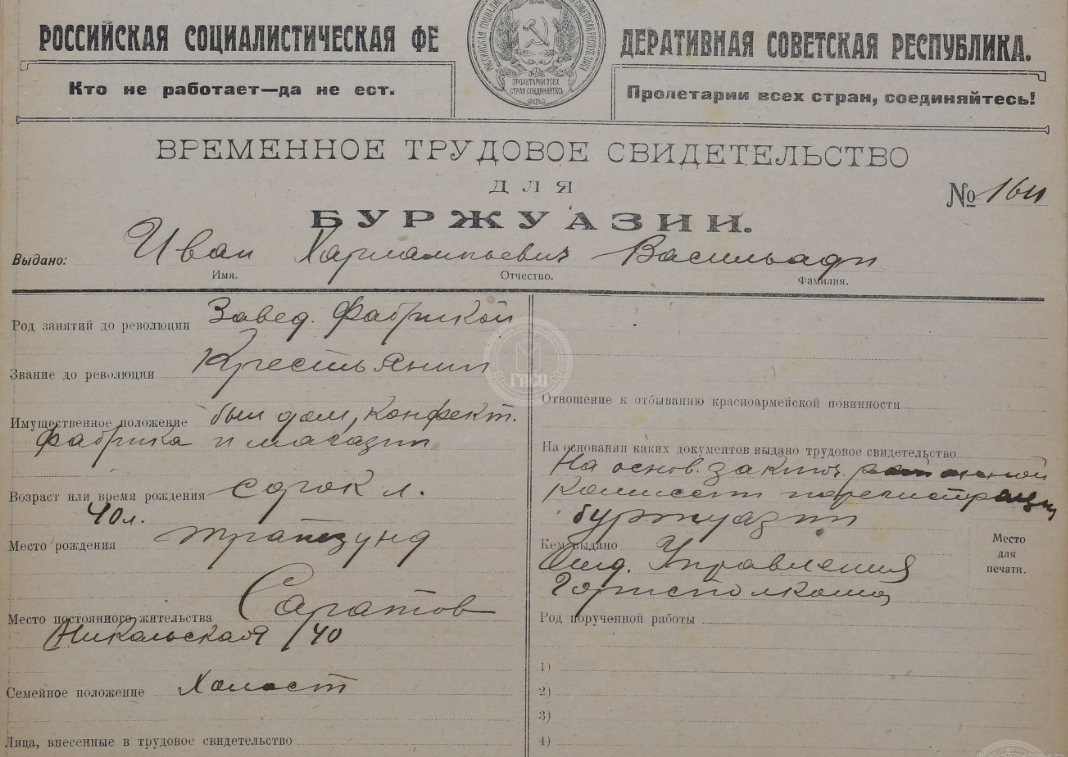 РОССИЙСКАЯ СОЦИАЛИСТИЧЕСКАЯ ФЕДЕРАТИВНАЯ СОВЕТСКАЯ РЕСПУБЛИКА.
Кто не работает—да не ест.
ПРОЛЕТАРИИ ВСЕХ
СТРАН СОЕДИНЯЙТЕСЬ
Пролетарии всех стран, соединяйтесь!
ВРЕМЕННОЕ ТРУДОВОЕ СВИДЕТЕЛЬСТВО
ДЛЯ
БУРЖУАЗИИ.
№
Выдано: Иван Харлампьевич Васильади
Имя. Отчество. Фамилия.
Род занятий до революции Завед. Фабрикой
Звание до революции Крестьянин
Имущественное положение был дом, конфект.
фабрика и магазин
Возраст или время рождения сорок л.
40 л.
Место рождения Трапезунд
Место постоянного жительства Саратов
Никольская / 40
Семейное положение Холост
Лица, внесенные в трудовое свидетельство
ГАСО
Отношение к отбыванию красноармейской повинности
На основании каких документов выдано трудовое свидетельство
На основ. заключ.
комиссии по регистрации
буржуазии
Кем выдано Отд. Управления
Горисполкома
Место
для
печати.
Род порученной работы
1)
2)
3)
4)